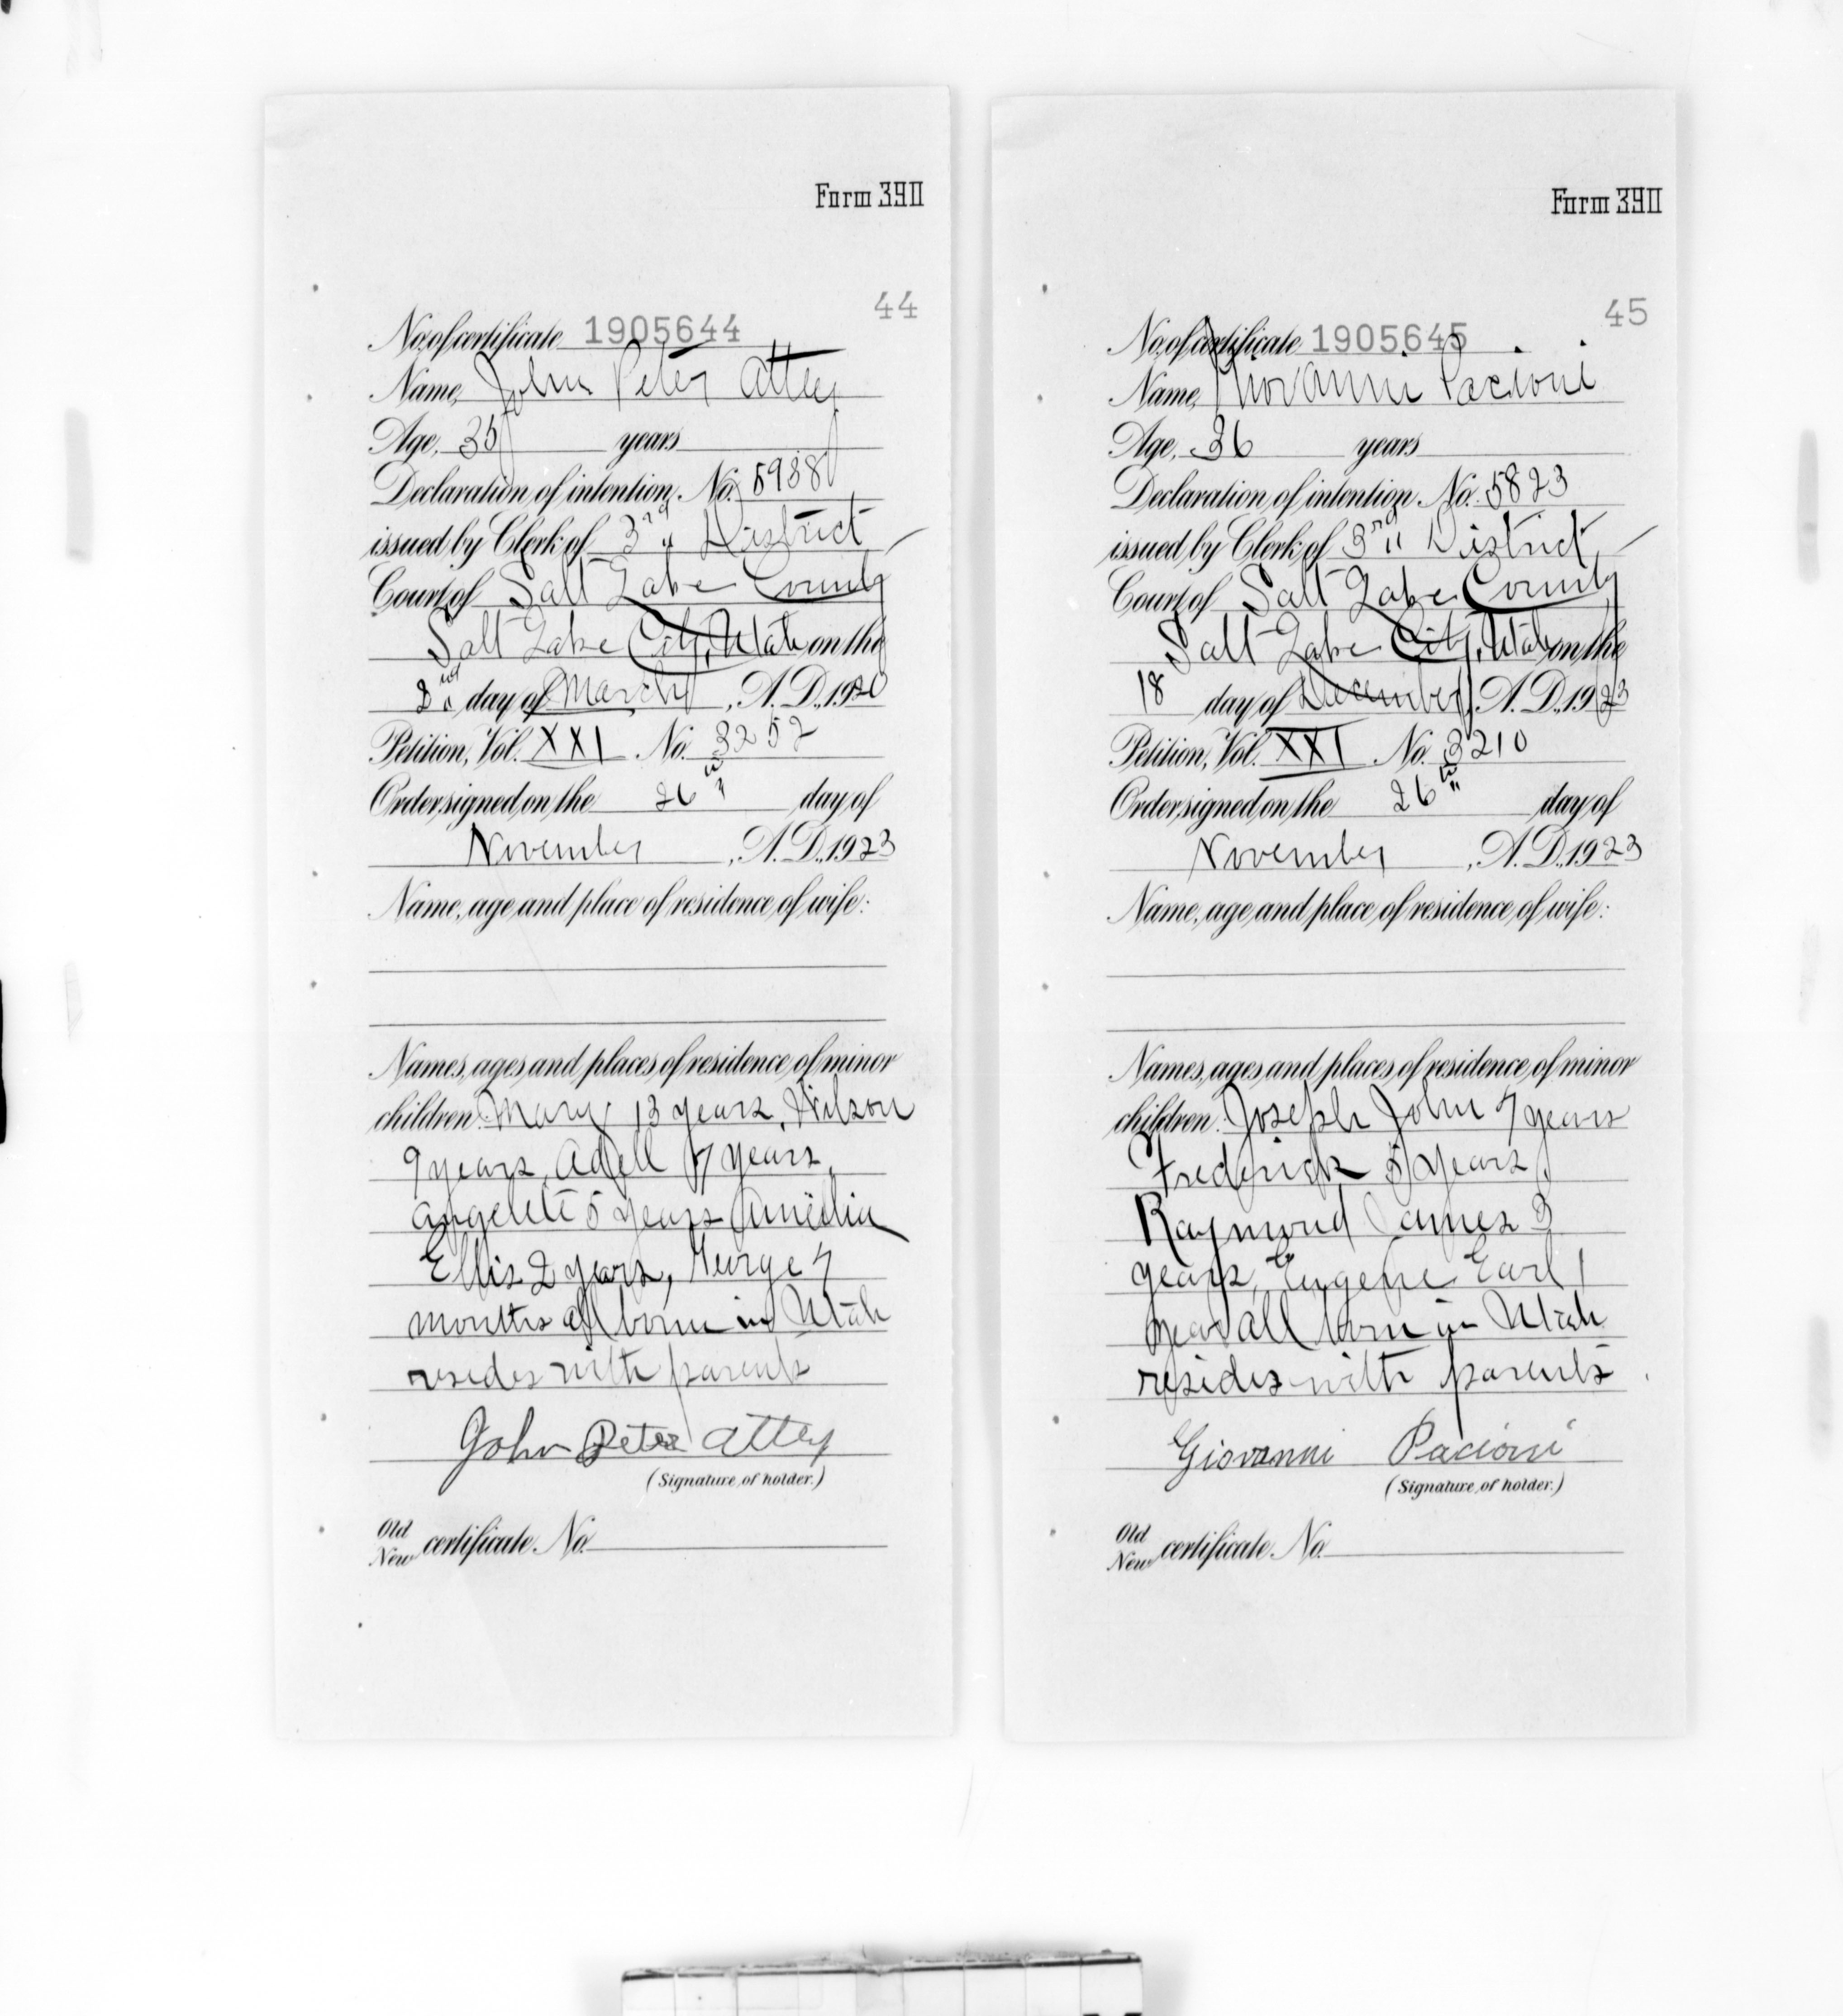 Form 390
44
No. of certificate 1905644
Name, John Peter Attey
Age, 35 years
Declaration of intention, No. 5938
issued by Clerk of 3rd District
Court of Salt Lake County
Salt Lake City, Utah on the
2nd day of March, A. D., 1920
Petition, Vol. XXI No. 3252
Order signed on the 26th day of
November, A. D., 1923
Name, age and place of residence of wife:
Names, ages and places of residence of minor
children: Mary 13 years, Wilson
9 years, Adell 7 years,
Angelete 5 years Amelia
Ellis 2 years, George 7
months all born in Utah
resides with parents
John Peter Attey
(Signature of holder.)
Old
New certificate No.
Form 390
45
No. of certificate 1905645
Name, Giovanni Pacioni
Age, 36 years
Declaration of intention No. 5823
issued by Clerk of 3rd District
Court of Salt Lake County
Salt Lake City, Utah on the
18 day of December, A. D., 1923
Petition, Vol. XXI No. 3210
Order signed on the 26th day of
November, A. D., 1923
Name, age and place of residence of wife:
Names, ages and places of residence of minor
children: Joseph John 7 years
Frederick 5 years,
Raymond James 3
years, Eugene Earl 1
year all born in Utah
resides with parents
Giovanni Pacioni
(Signature of holder.)
Old
New certificate No.